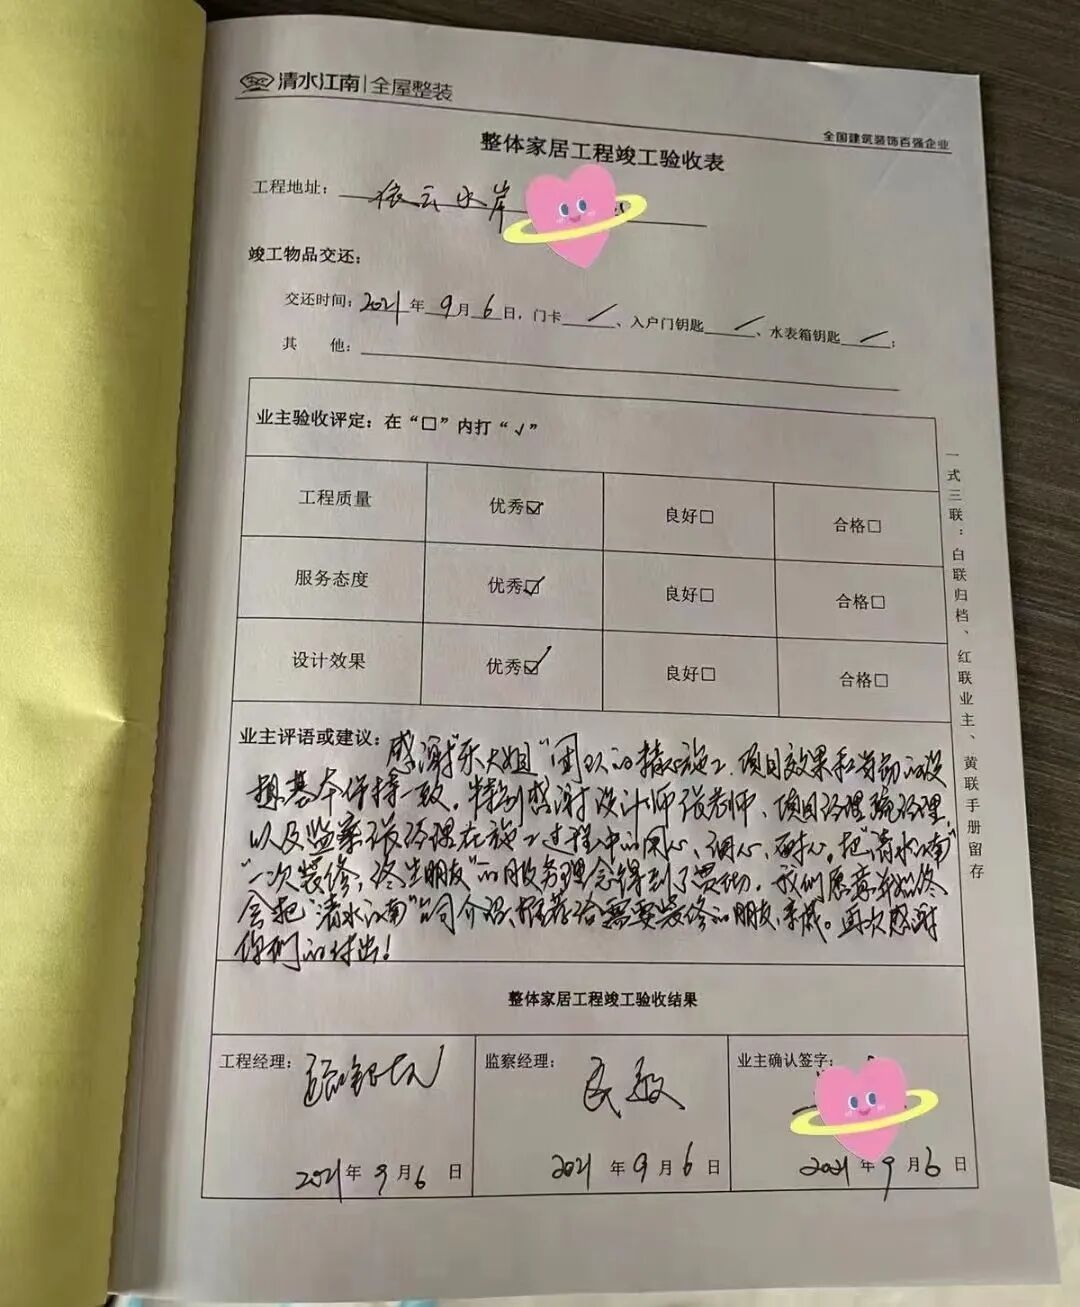 清水江南|全屋整装
全国建筑装饰百强企业
整体家居工程竣工验收表
工程地址：依云水岸
竣工物品交还：
交还时间：2021年9月6日，门卡/、入户门钥匙/、水表箱钥匙/；
其 他：
业主验收评定：在“□”内打“√”
工程质量 优秀☑ 良好□ 合格□
服务态度 优秀☑ 良好□ 合格□
设计效果 优秀☑ 良好□ 合格□
一式三联：白联归档、红联业主、黄联手册留存
业主评语或建议：感谢“乐大姐”团队的精心施工，项目效果和当初的设
想基本保持一致，特别感谢设计师张老师、项目经理骆经理，
以及监察张经理在施工过程中的用心、细心、耐心，把“清水江南”
“一次装修，终生朋友”的服务理念得到了贯彻，我们愿意并始终
会把“清水江南”公司介绍、推荐给需要装修的朋友、亲戚。再次感谢
你们的付出！
整体家居工程竣工验收结果
工程经理：
监察经理：
业主确认签字：
2021年9月6日
2021年9月6日
2021年9月6日